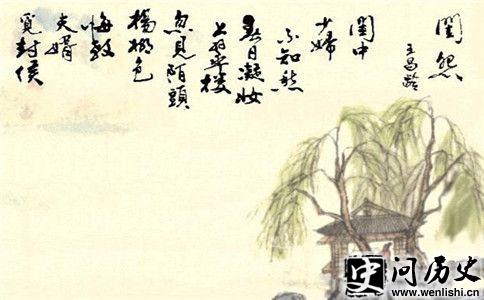 閨怨
王昌齡
閨中
少婦
不知愁
春日凝妝
上翠樓
忽見陌頭
楊柳色
悔教
夫婿
覓封侯
史 问历史
www.wenlishi.cn